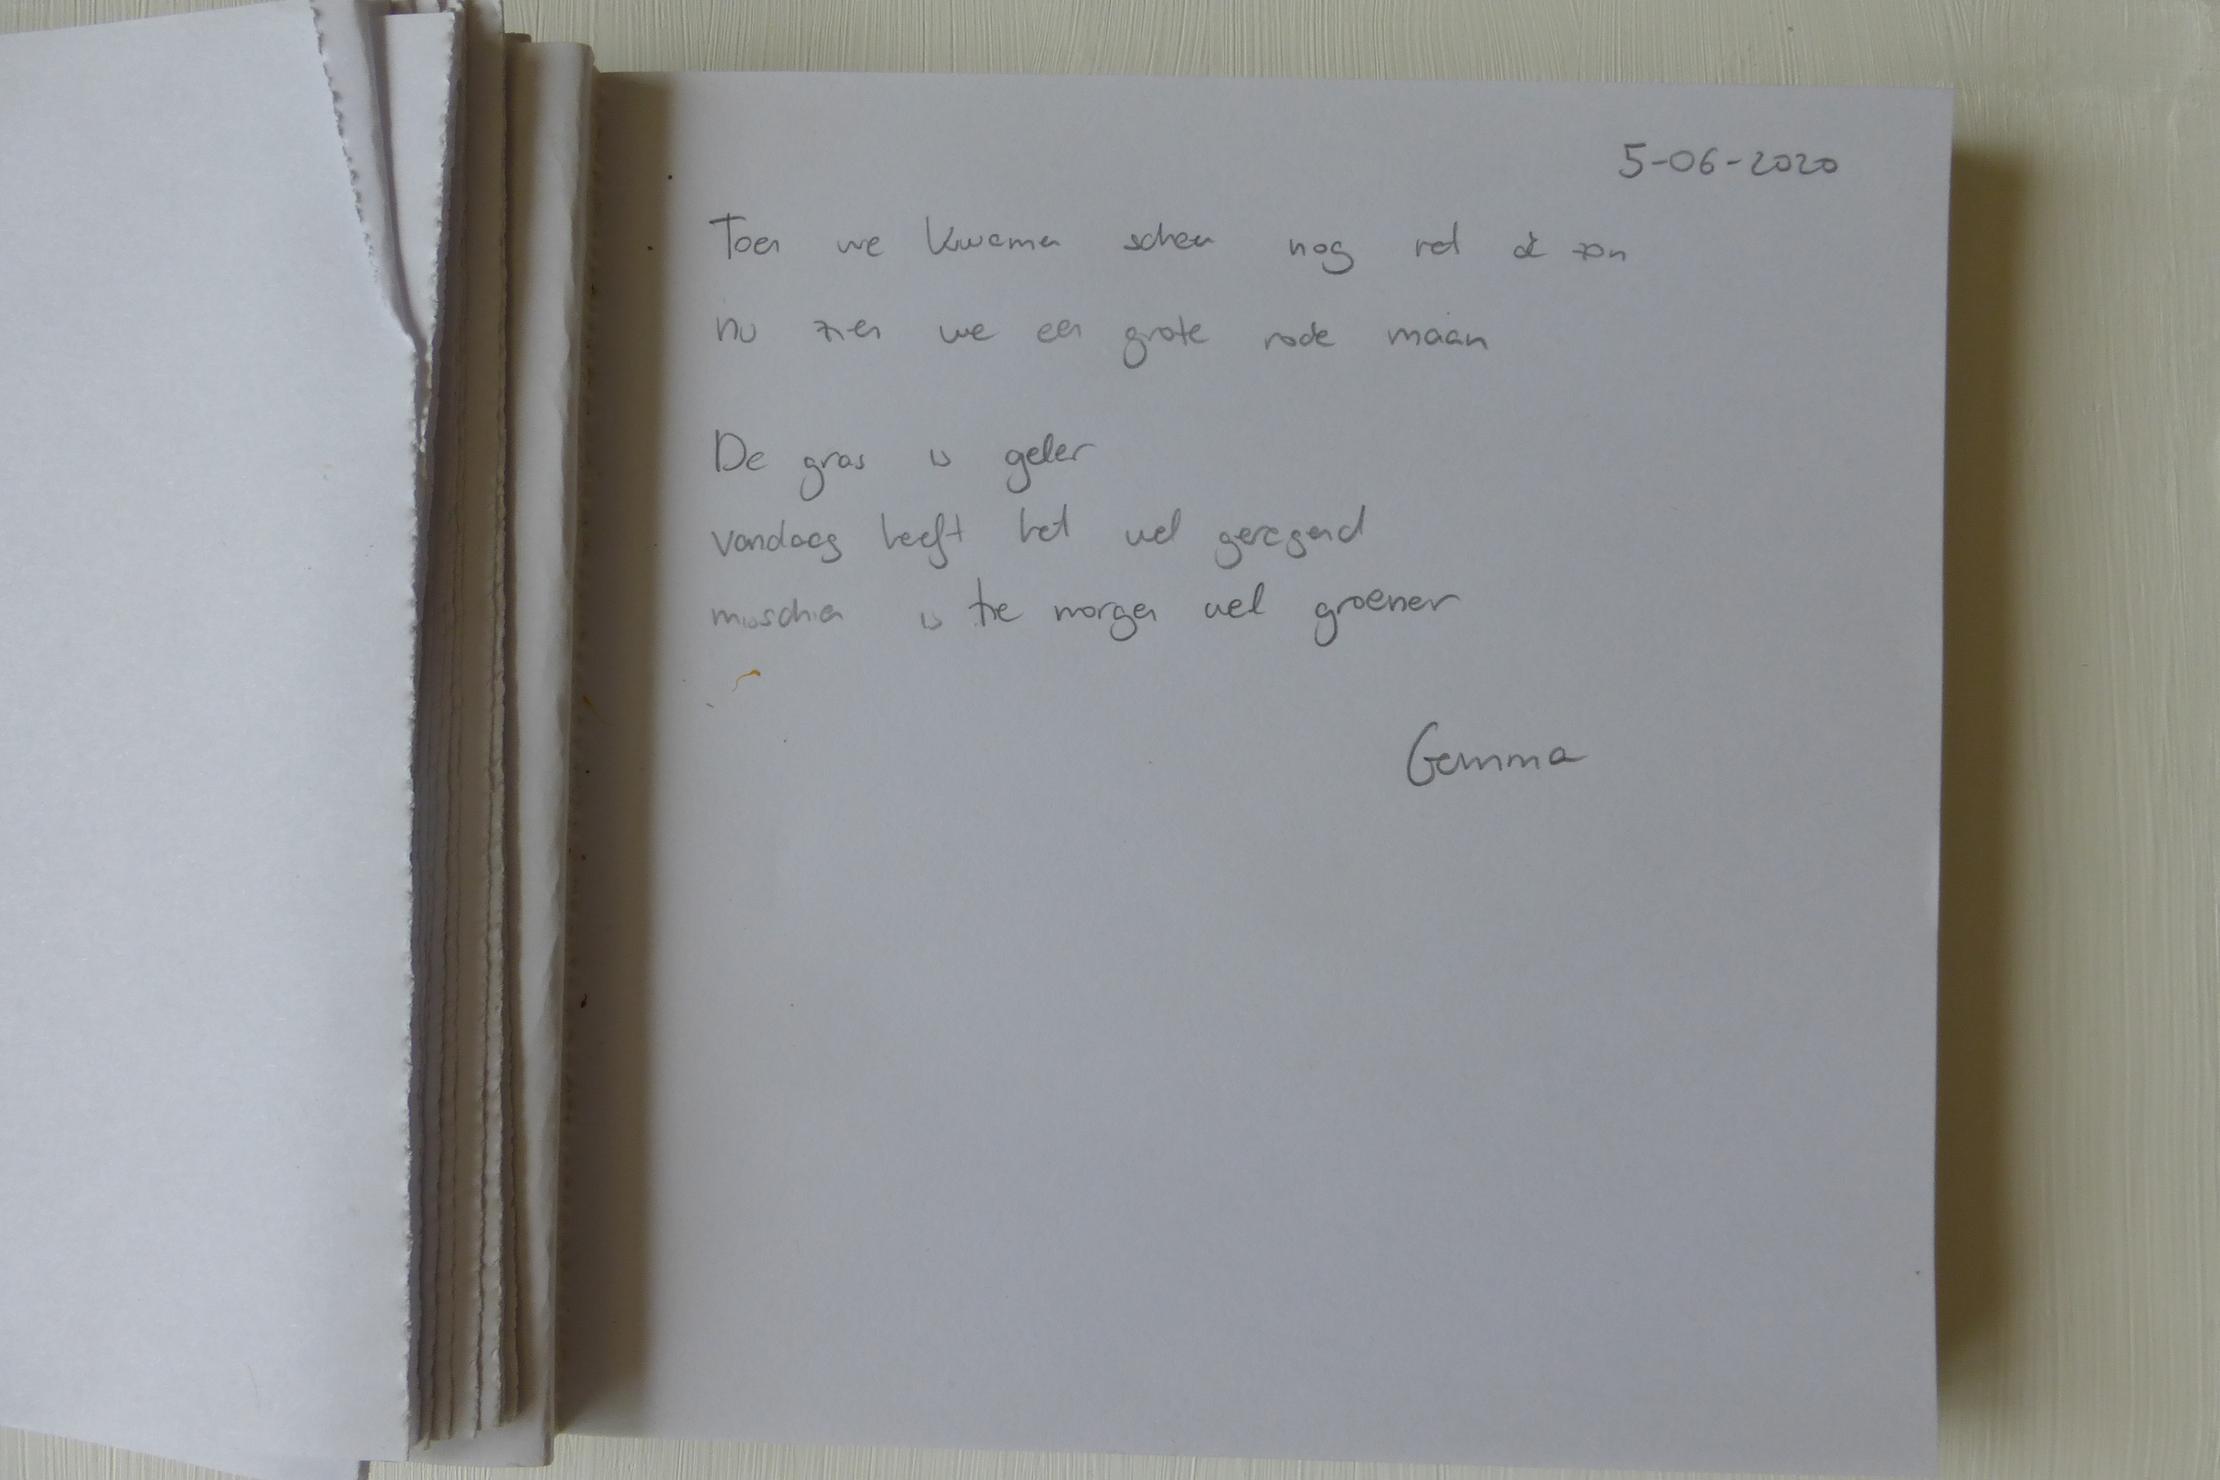 5-06-2020
Toen we kwamen scheen nog net de zon
nu zien we een grote rode maan
De gras is geler
vandaag heeft het wel geregend
misschien is morgen wel groener
Gemma